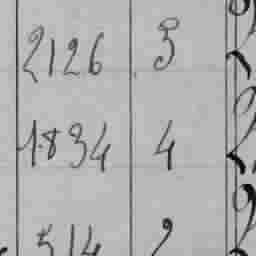 2126 5
1834 4
514